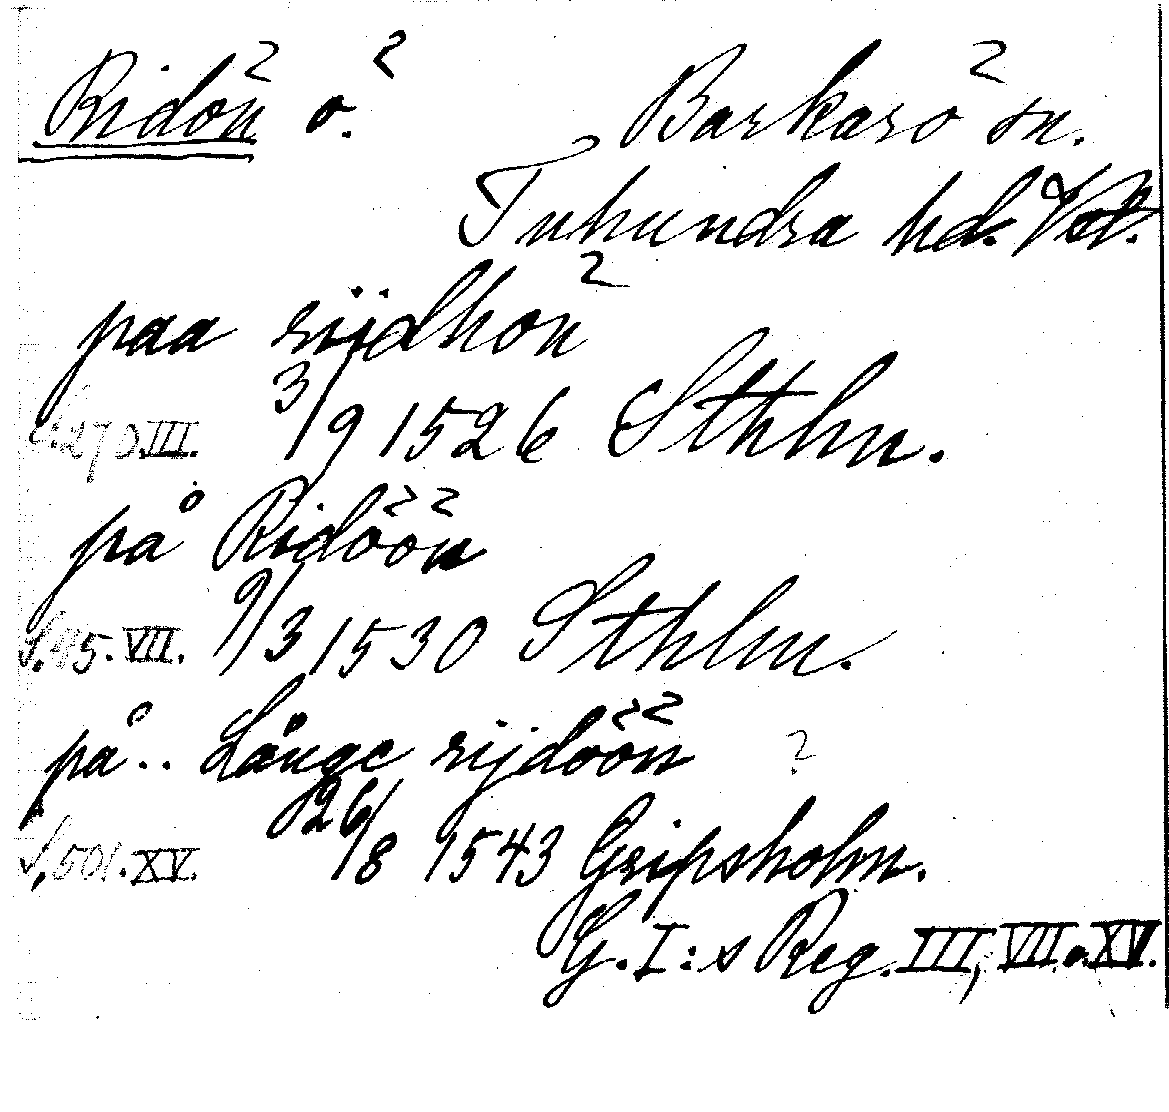 Ridön ö.
Barkarö sn.
Tuhundra hd. Vstl.
paa rijdhön
S. 270. III. 3/9 1526 Sthlm.
på Ridöön
S. 45. VII. 9/3 1530 Sthlm.
på .. Långe rijdöön ?
S. 501. XV. 26/8 1543 Gripsholm.
G. I:s Reg. III, VII o. XV.